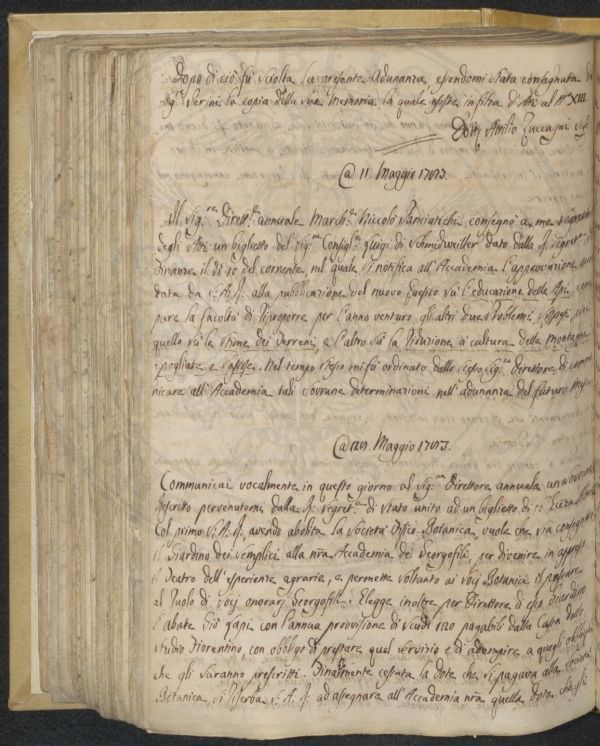 Dopo di ciò fù sciolta la presente Adunanza, essendomi stata consegnata dal
Sig.r Sarini la copia della sua Memoria la quale esiste in filza d'Atti al N.° XIII.
Dott. Attilio Zuccagni Seg.
@ 11. Maggio 1783.
Il Sig.re Dirett.re annuale March.e Niccolò Panciatichi consegnò a me Segretario
degli Atti un biglietto del Sig.re Consigl.re Luigi di Schmidweiller dato dalla Segret.a di
Finanze il dì 10 del corrente, nel quale si notifica all'Accademia l'approvazione
data da S. A. R. alla pubblicazione del nuovo quesito sù l'educazione delle Api, come
pure la facoltà di riproporre per l'anno venturo gli altri due Problemi,
quello sù la stima dei terreni, e l'altro sù la riduzione a cultura della montagne
spogliate e sassose. Nel tempo stesso mi fù ordinato dallo stesso Sig.re Direttore di comu-
nicare all'Accademia tali Sovrane determinazioni nell'adunanza del futuro
Maggio 1783.
Communicai vocalmente in questo giorno al Sig.re Direttore annuale un
rescritto pervenutomi dalla R. Segret.a di Stato unito ad un biglietto di
Col primo S. A. R. avendo abolita la Società Fisico-Botanica, vuole che sia consegnato
il Giardino dei Semplici alla n̄ra Accademia dei Georgofili, per divenire in
il Teatro dell'esperienze agrarie, e permette soltanto ai Socj Botanici il passare
al Ruolo di Socj onorarj Georgofili. Elegge inoltre per Direttore di esso Giardino
l'abate Gio. Lapi con l'annua provvisione di Scudi 120 pagabili dalla Cassa dello
Studio Fiorentino, con obbligo di prestare quel servizio e di adempire a quegli obblighi
che gli saranno prescritti. Finalmente cessata la Dote che si pagava alla Società
Botanica, si riserba S. A. R. ad assegnare all'Accademia n̄ra quella Dote